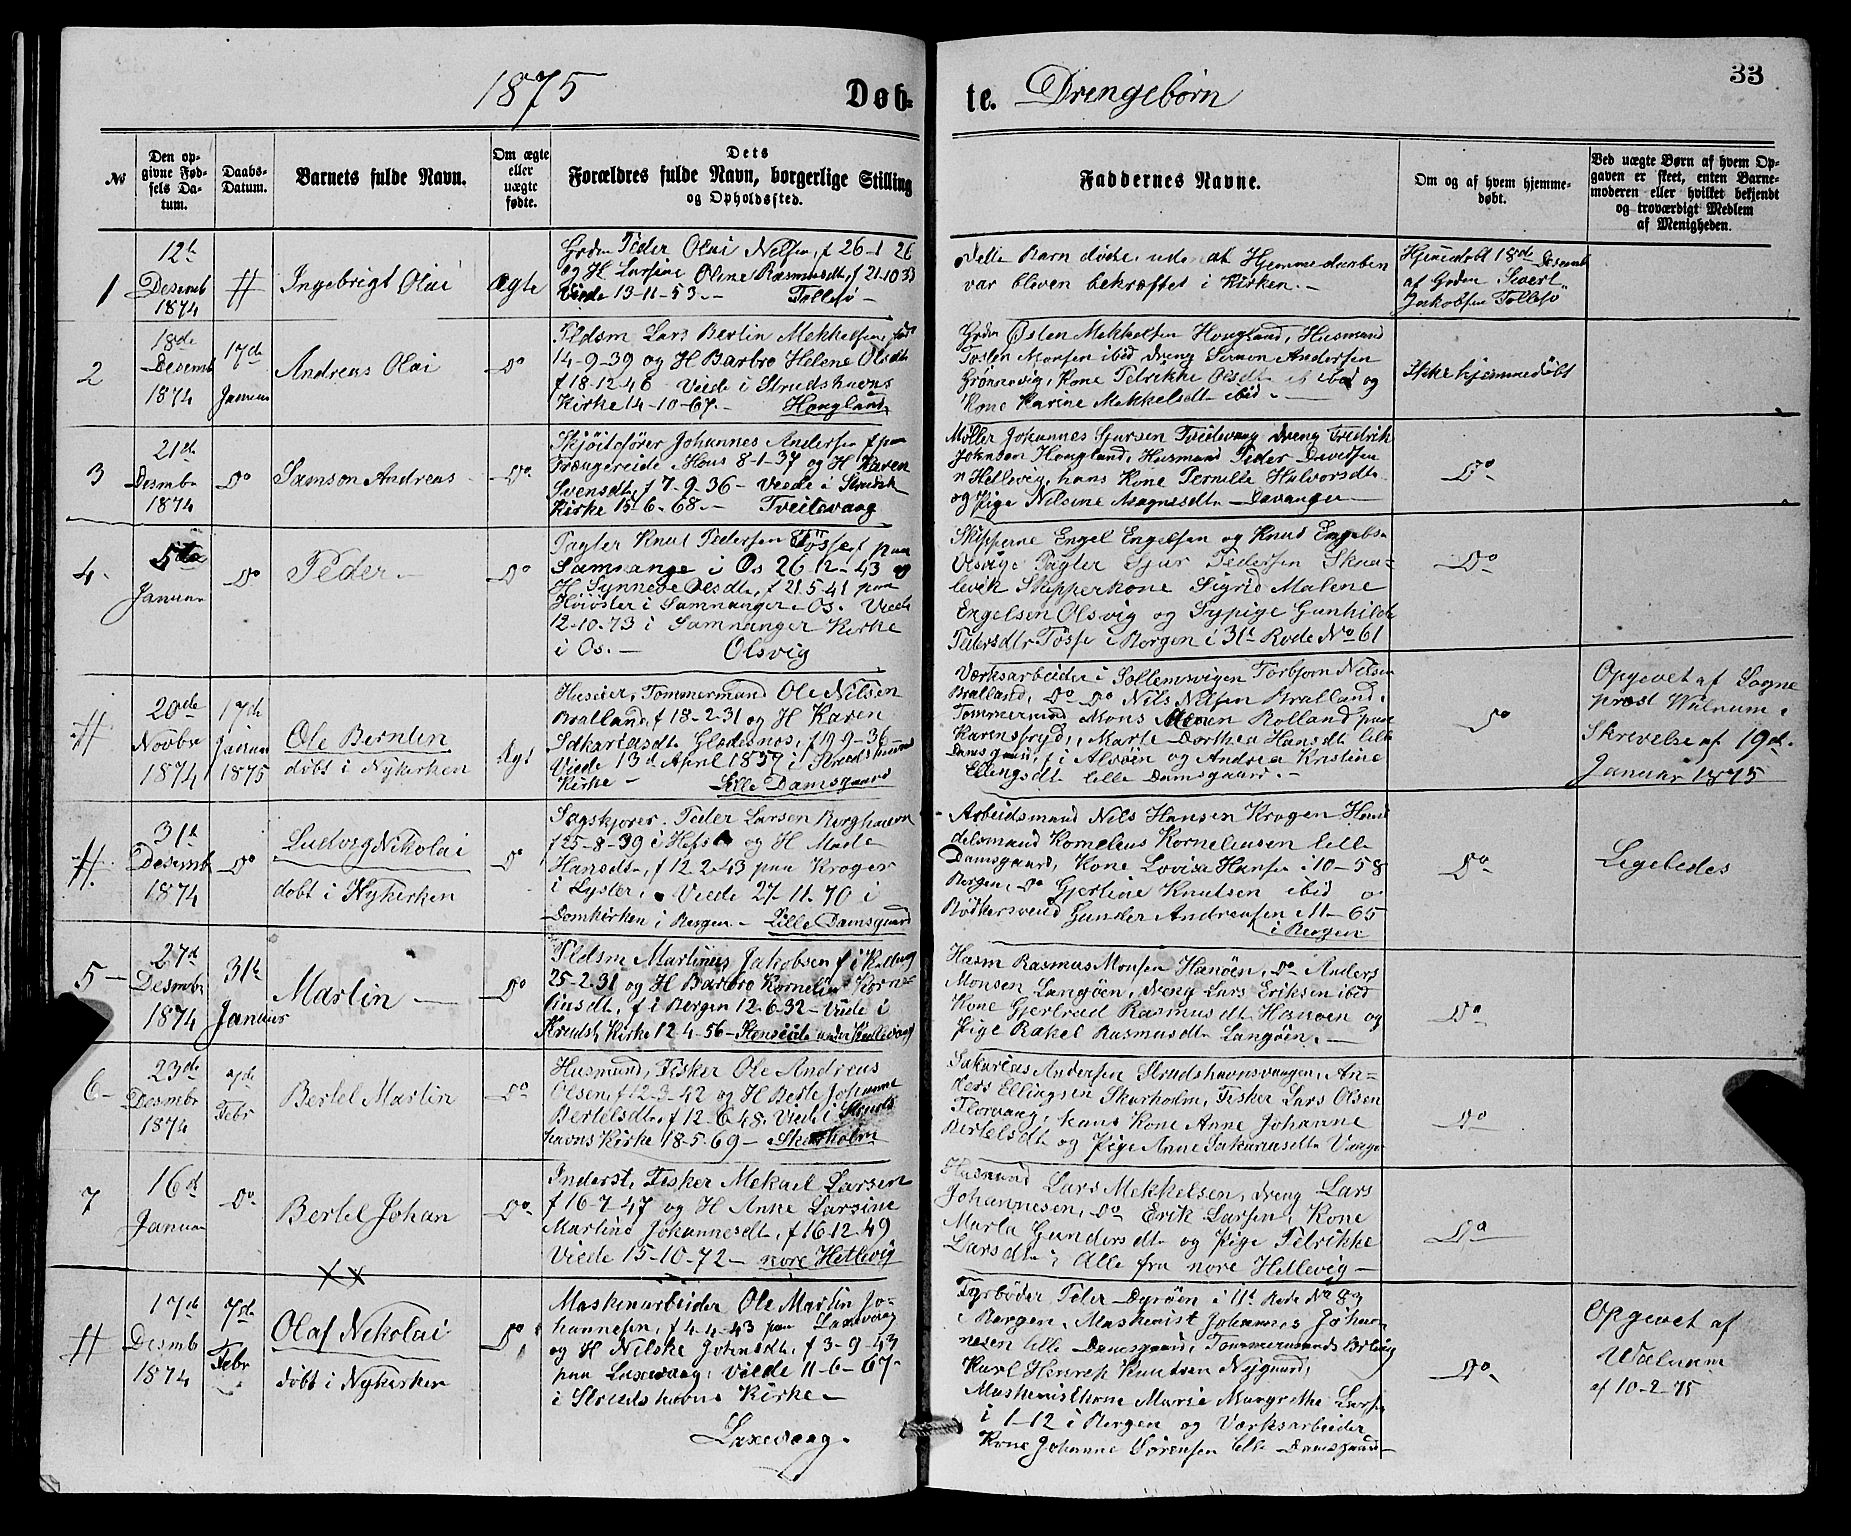 1875 Døb- te. Drengebørn 33
№
Den op-
givne Fød-
sels Da-
tum.
Daabs-
Datum.
Barnets fulde Navn.
Om ægte
eller
uægte
fødte.
Dets
Forældres fulde Navn, borgerlige Stilling
og Opholdssted.
Faddernes Navne.
Om og af hvem hjemme-
døbt.
Ved uægte Børn af hvem Op-
gaven er skeet, enten Barne-
moderen eller hvilket bekjendt
og troværdigt Medlem
af Menigheden.
1
12te
Desemb
1874
#
Ingebrigt Olai
Ægte
Grdm Peder Olai Nilsen, f 26-1 26
og H Larsine Oline Rasmusdt, f 21-10 33
Viede 13-11-53.-
Tollesø -
Dette Barn døde, uden at Hjemmedaaben
var bleven bekræftet i Kirken. -
Hjemedøbt 18de Desemb
af Grden Sivert
Jakobsen Tollesø
2
18de
Desemb
1874
17de
Januar
Andreas Olai
Do
Pldsm Lars Bertin Mekkelsen, fød
14-9-39 og H Barbro Helene Olsdt
f 18-12 46 Viede i Strudshavns
Kirke 14-10-67.- Hougland
Grdm Østen Mekkelsen Hougland, Husmand
Tosten Monsen ibid dreng Simon Andersen
Grønnevig, Kone Petrikke Olsdt ibid og
Kone Karine Mekkelsdt ibid. -
Ikke hjemmedøbt
3
21de
Desmbr
1874
Do
Samson Andreas
Do
Skjøitefører Johannes Andersen f paa
Trængereide i Hous 8-1-37 og H Karen
Svensdt, f 7-9-36 - Viede i Strudsh
Kirke 15-6-68.- Tveitevaag
Møller Johannes Sjursen Tveitevaag dreng Fredrik
Johnsen Hougland, Husmand Peder Davidsen
n Hetlevig, hans Kone Pernille Halvorsdt
og Pige Nilsine Magnesdt Davanger
Do
4
5te
Januar
Do
Peder -
Do
Pagter Knut Pedersen Tøsse f paa
Samnange i Os 26 12-43 og
H Synneve Olsdt, f 21.5-41 paa
i Samnanger - Os. Viede
12-10-73 i Samnanger Kirke
i Os. - Olsvig
Skipperne Engel Engelsen og Knud Engels
Olsvig Pagter Sjur Pedersen Skaa-
levik Skipperkone Sigrid Malene
Engelsen Olsvig og Sypige Gunhilde
Petersdtr Tøsse i Bergen i 31te Rode No 61
Do
#
20de
Novbr
1874
17de
Januar
1875
Ole Berntin
døbt i Nykirken
Ægt
Huseier, Tømmermand Ole Nilsen
Bralland, f 18-2-31 og H Karen
Sakariasdt Gladesnos, f 19 9-36
Viede 13d April 1857 i Strudshavns
Kirke - Lille Damsgaard
Værksarbeider i Sollemsvigen Torbjørn Nilsen
Bralland, Do Do Nils Nilsen Bralland,
Tømmermand Mons Rolland paa
Karensfryd, Marte Dorthea Hansdt lille
Damsgaard, i Alvøen og Andrea Kristine
Ellingsdt lille Damsgaard. -
Do
Opgevet af Sogne
præst Walnum i
Skrevelse af 19d
Januar 1875
#
31te
Desemb
1874
Do
Ludvig Nikolai
døbt i Nykirken
Do
Sagskjører Peder Larsen Borghaven
f 25-8-39 i Hafslo og H Made
Hansdt, f 12-2-43 paa Kroger
i Lyster, - Viede 27-11-70 i
Domkirken i Bergen. - Lille Damsgaard
Arbeidsmand Nils Hansen Krogen Han-
delsmand Kornelius Korneliusen lille
Damsgaard, Kone Lovise Hansen i 10-58
Bergen, Do Gjertine Knutsen ibid og
Bødkersvend Gunder Andreasen i 11-65
i Bergen
Do
Ligeledes
5 -
27d
Desmbr
1874
31te
Januar
Martin -
Do
Pldsm Martinus Jakobsen f i
25-2-31 og H Barbro Kornelia Korne-
liusdt, f i Bergen 12-6-32 - Viede i
Strudsh Kirke 12-4-56 -
Hasm Rasmus Monsen Hanøen, Do Anders
Monsen Langøen, dreng Lars Eriksen ibid
Kone Gjertrud Rasmusdt Hanøen og
Pige Rakel Rasmusdt Langøen. -
Do
6 -
23de
Desmbr
1874
7de
Febr
Bertel Martin
Do
Husmand, Fisker Ole Andreas
Olsen, f 12-3-42 og H Berte Johanne
Bertelsdt, f 12-6-48. Viede i Struds
havns Kirke 18-5-69 - Skarholm
Sakarias Andersen Strudshavnsvaagen, An-
ders Ellingsen Skarholm, Fisker Lars Olsen
Florvaag, hans Kone Anne Johanne
Bertelsdt og Pige Anne Sakariasdt Vaage
Do
7
16d
Januar
Do
Bertel Johan
Do
Inderst, Fisker Mekael Larsen
f 16-7-47 og H Anne Larsine
Martine Johannesdt, f 16-12-49
Viede 15-10-72 - nore Hetlevig
Husmand Lars Mekkelsen, dreng Lars
Johannesen, Do Erik Larsen, Kone
Marta Gundersdt og Pige Petrikke
Larsdt, Alle fra nore Hetlevig -
Do
xx
#
17d
Desmb
1874
7de
Febr
Olaf Nekolai
døbt i Nykirken
Do
Maskinarbeider Ole Martin Jo-
hannesen, f 4-4-43 paa Laxevaag
og H Nilske Johnsdt, f 3-9-43
paa Laxevaag, Viede 11-6-67-
i Strudshavns Kirke -
Laxevaag.
Fyrbøder Peter Dyrøen i 11t Rode No 83
i Bergen, Maskinist Johannes Johan-
nesen lille Damsgaard, Tømmermands
Karl Henrik Knudsen Nygaard,
Maskenistkone Marie Margrethe Larsen
i 1-12 i Bergen og Værksarbeider
Kone Johanne Sørensen lille Damsgaard -
Do
Opgevet af
Walnum
af 10-2-75